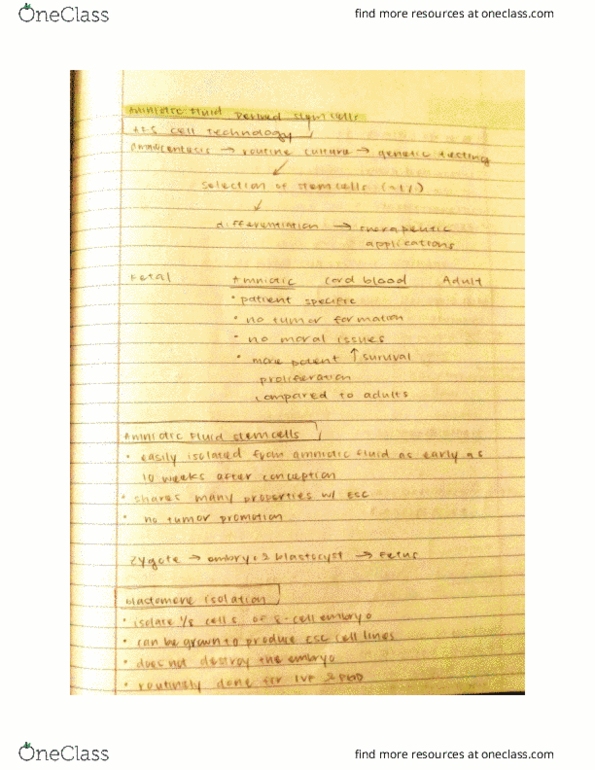 OneClass
find more resources at oneclass.com
Amniotic Fluid Derived stem cells
AFS cell technology
amniocentesis → routine culture → genetic testing
↙
selection of stem cells (~1%)
↙
differentiation → therapeutic
applications
Fetal Amniotic cord blood Adult
• patient specific
• no tumor formation
• no moral issues
• more potent ↑ survival
proliferation
compared to adults
Amniotic Fluid stem cells
• easily isolated from amniotic fluid as early as
10 weeks after conception
• shares many properties w/ ESC
• no tumor promotion
Zygote → embryo → blastocyst → Fetus
blastomere isolation
• isolate 1/8 cells of 8-cell embryo
• can be grown to produce ESC cell lines
• does not destroy the embryo
• routinely done for IVF & PGD
OneClass
find more resources at oneclass.com